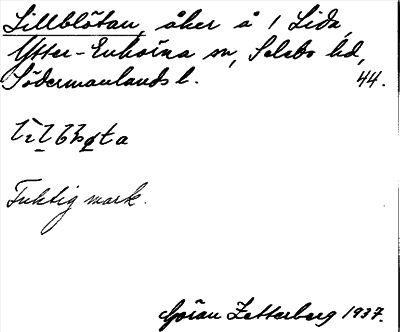 Lillblötan, åker å 1 Lida,
Ytter-Enhörna sn, Selebo hd,
Södermanlands l. 44.
Fuktig mark.
Göran Zetterberg 1937.